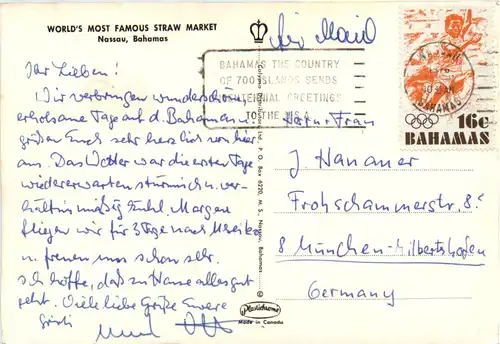 WORLD'S MOST FAMOUS STRAW MARKET
Nassau, Bahamas
Air Mail
BAHAMAS THE COUNTRY
OF 700 ISLANDS SENDS
GREETINGS
TO THE U.S.A.
BAHAMAS
16c
BAHAMAS
Ihr Lieben!
Wir verbringen wunderschöne
erholsame Tage auf d. Bahamas u.
grüßen Euch sehr herzlich von hier
aus. Das Wetter war die ersten Tage
wiedererwarten stürmisch u. ver-
hältnismäßig kühl. Morgen
fliegen wir für 3 Tage nach Mexiko
u. freuen uns schon sehr.
Ich hoffe, daß zu Hause alles gut
geht. Viele liebe Grüße Euere
und
Herrn u. Frau
J. Hanauer
Frohschammerstr. 8
8 München-Milbertshofen
Germany
P. O. Box 6220, M. S., Nassau, Bahamas
Plastichrome
Made in Canada